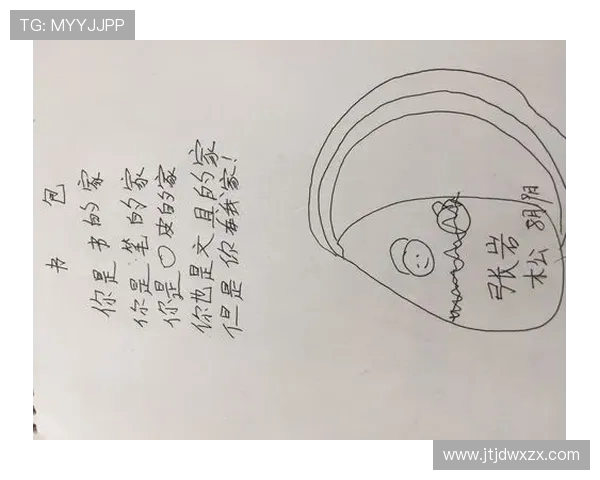 TG: MYYJJPP
书包
你是书的家
你是笔的家
你是○皮的家
你也是文具的家
但是你在我家！
张岩松
www.jtjdwxzx.com